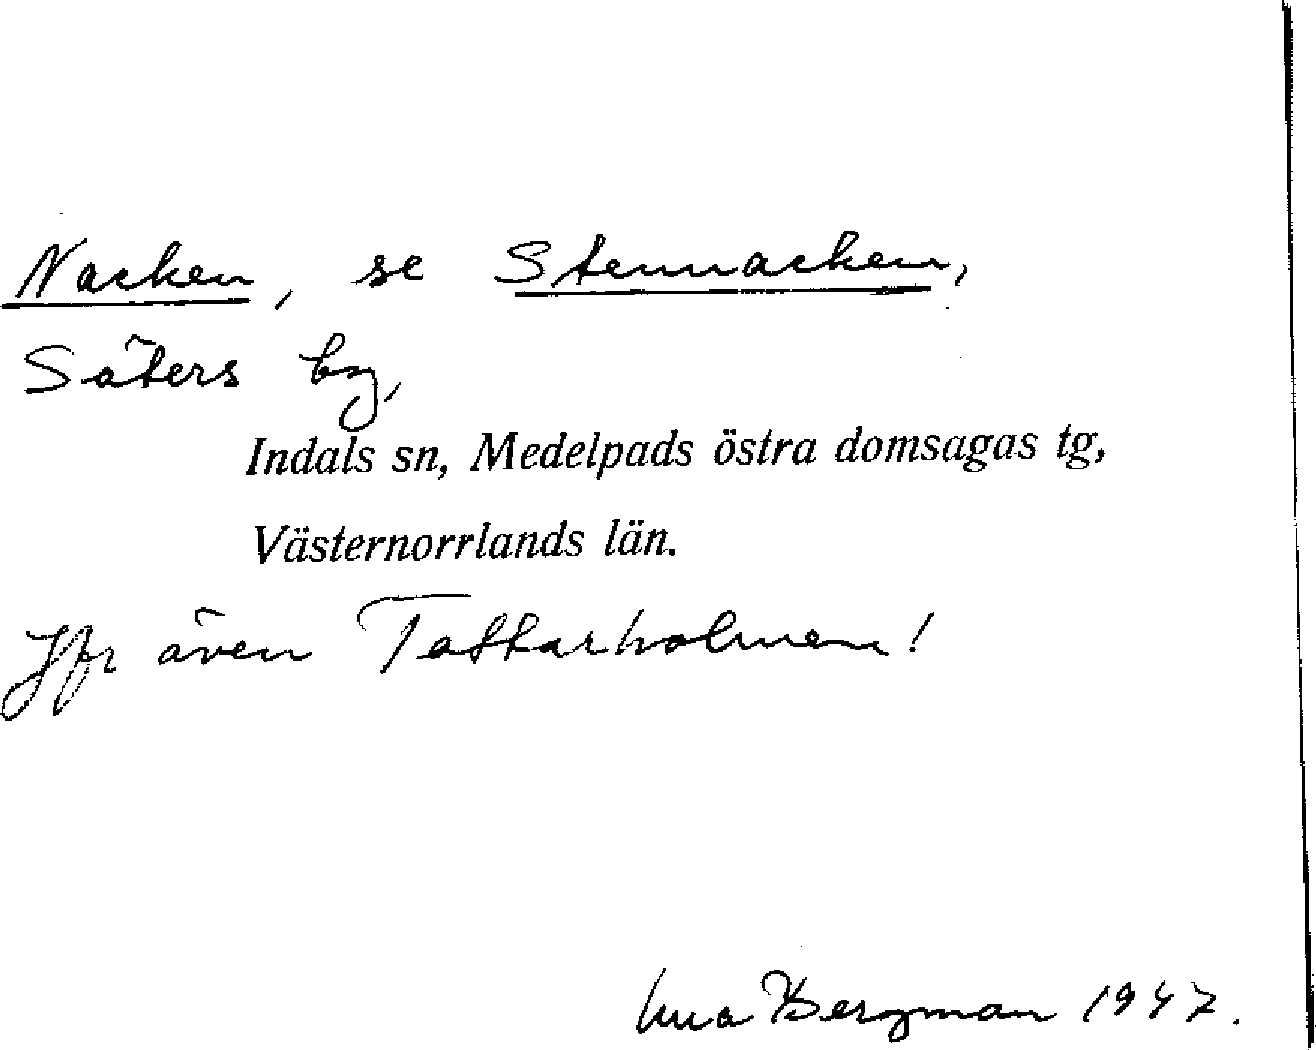 Nacken, se Stennacken,
Säters by,
Indals sn, Medelpads östra domsagas tg,
Västernorrlands län.
Jfr även Tattarholmen!
Bergman 1947.